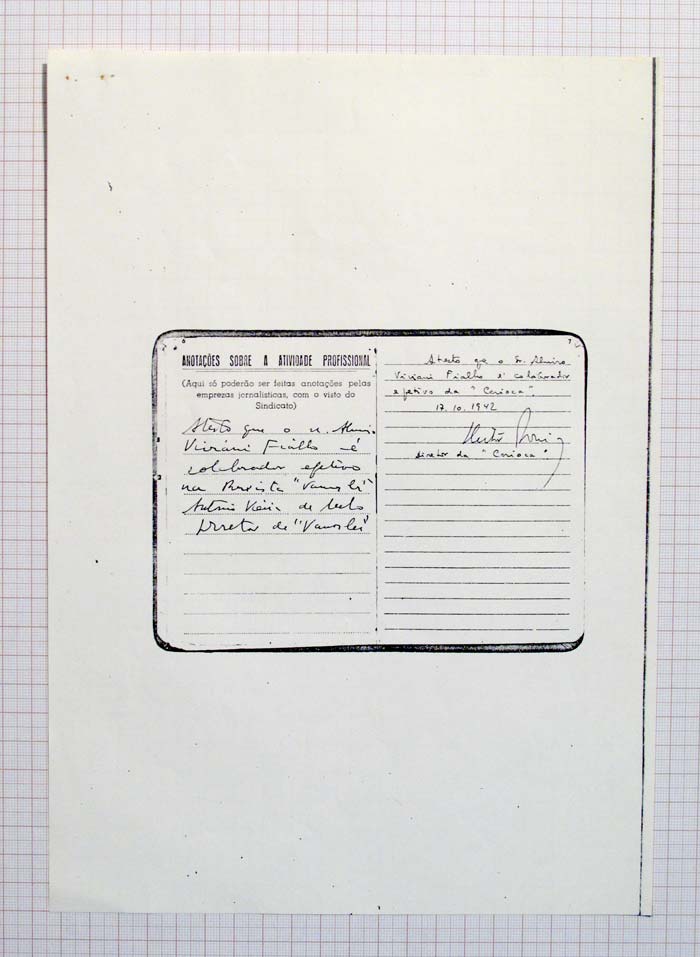 6
ANOTAÇÕES SOBRE A ATIVIDADE PROFISSIONAL
(Aqui só poderão ser feitas anotações pelas
emprezas jornalisticas, com o visto do
Sindicato)
Atesto que o sr. Almiro
Viviani Fialho é
colaborador efetivo
na Revista "Vamos lêr"
Antonio Vieira de Melo
Diretor de "Vamos lêr"
7
Atesto que o Sr. Almiro
Viviani Fialho é colaborador
efetivo da "Carioca".
17.10.1942
Heitor
Diretor da "Carioca".